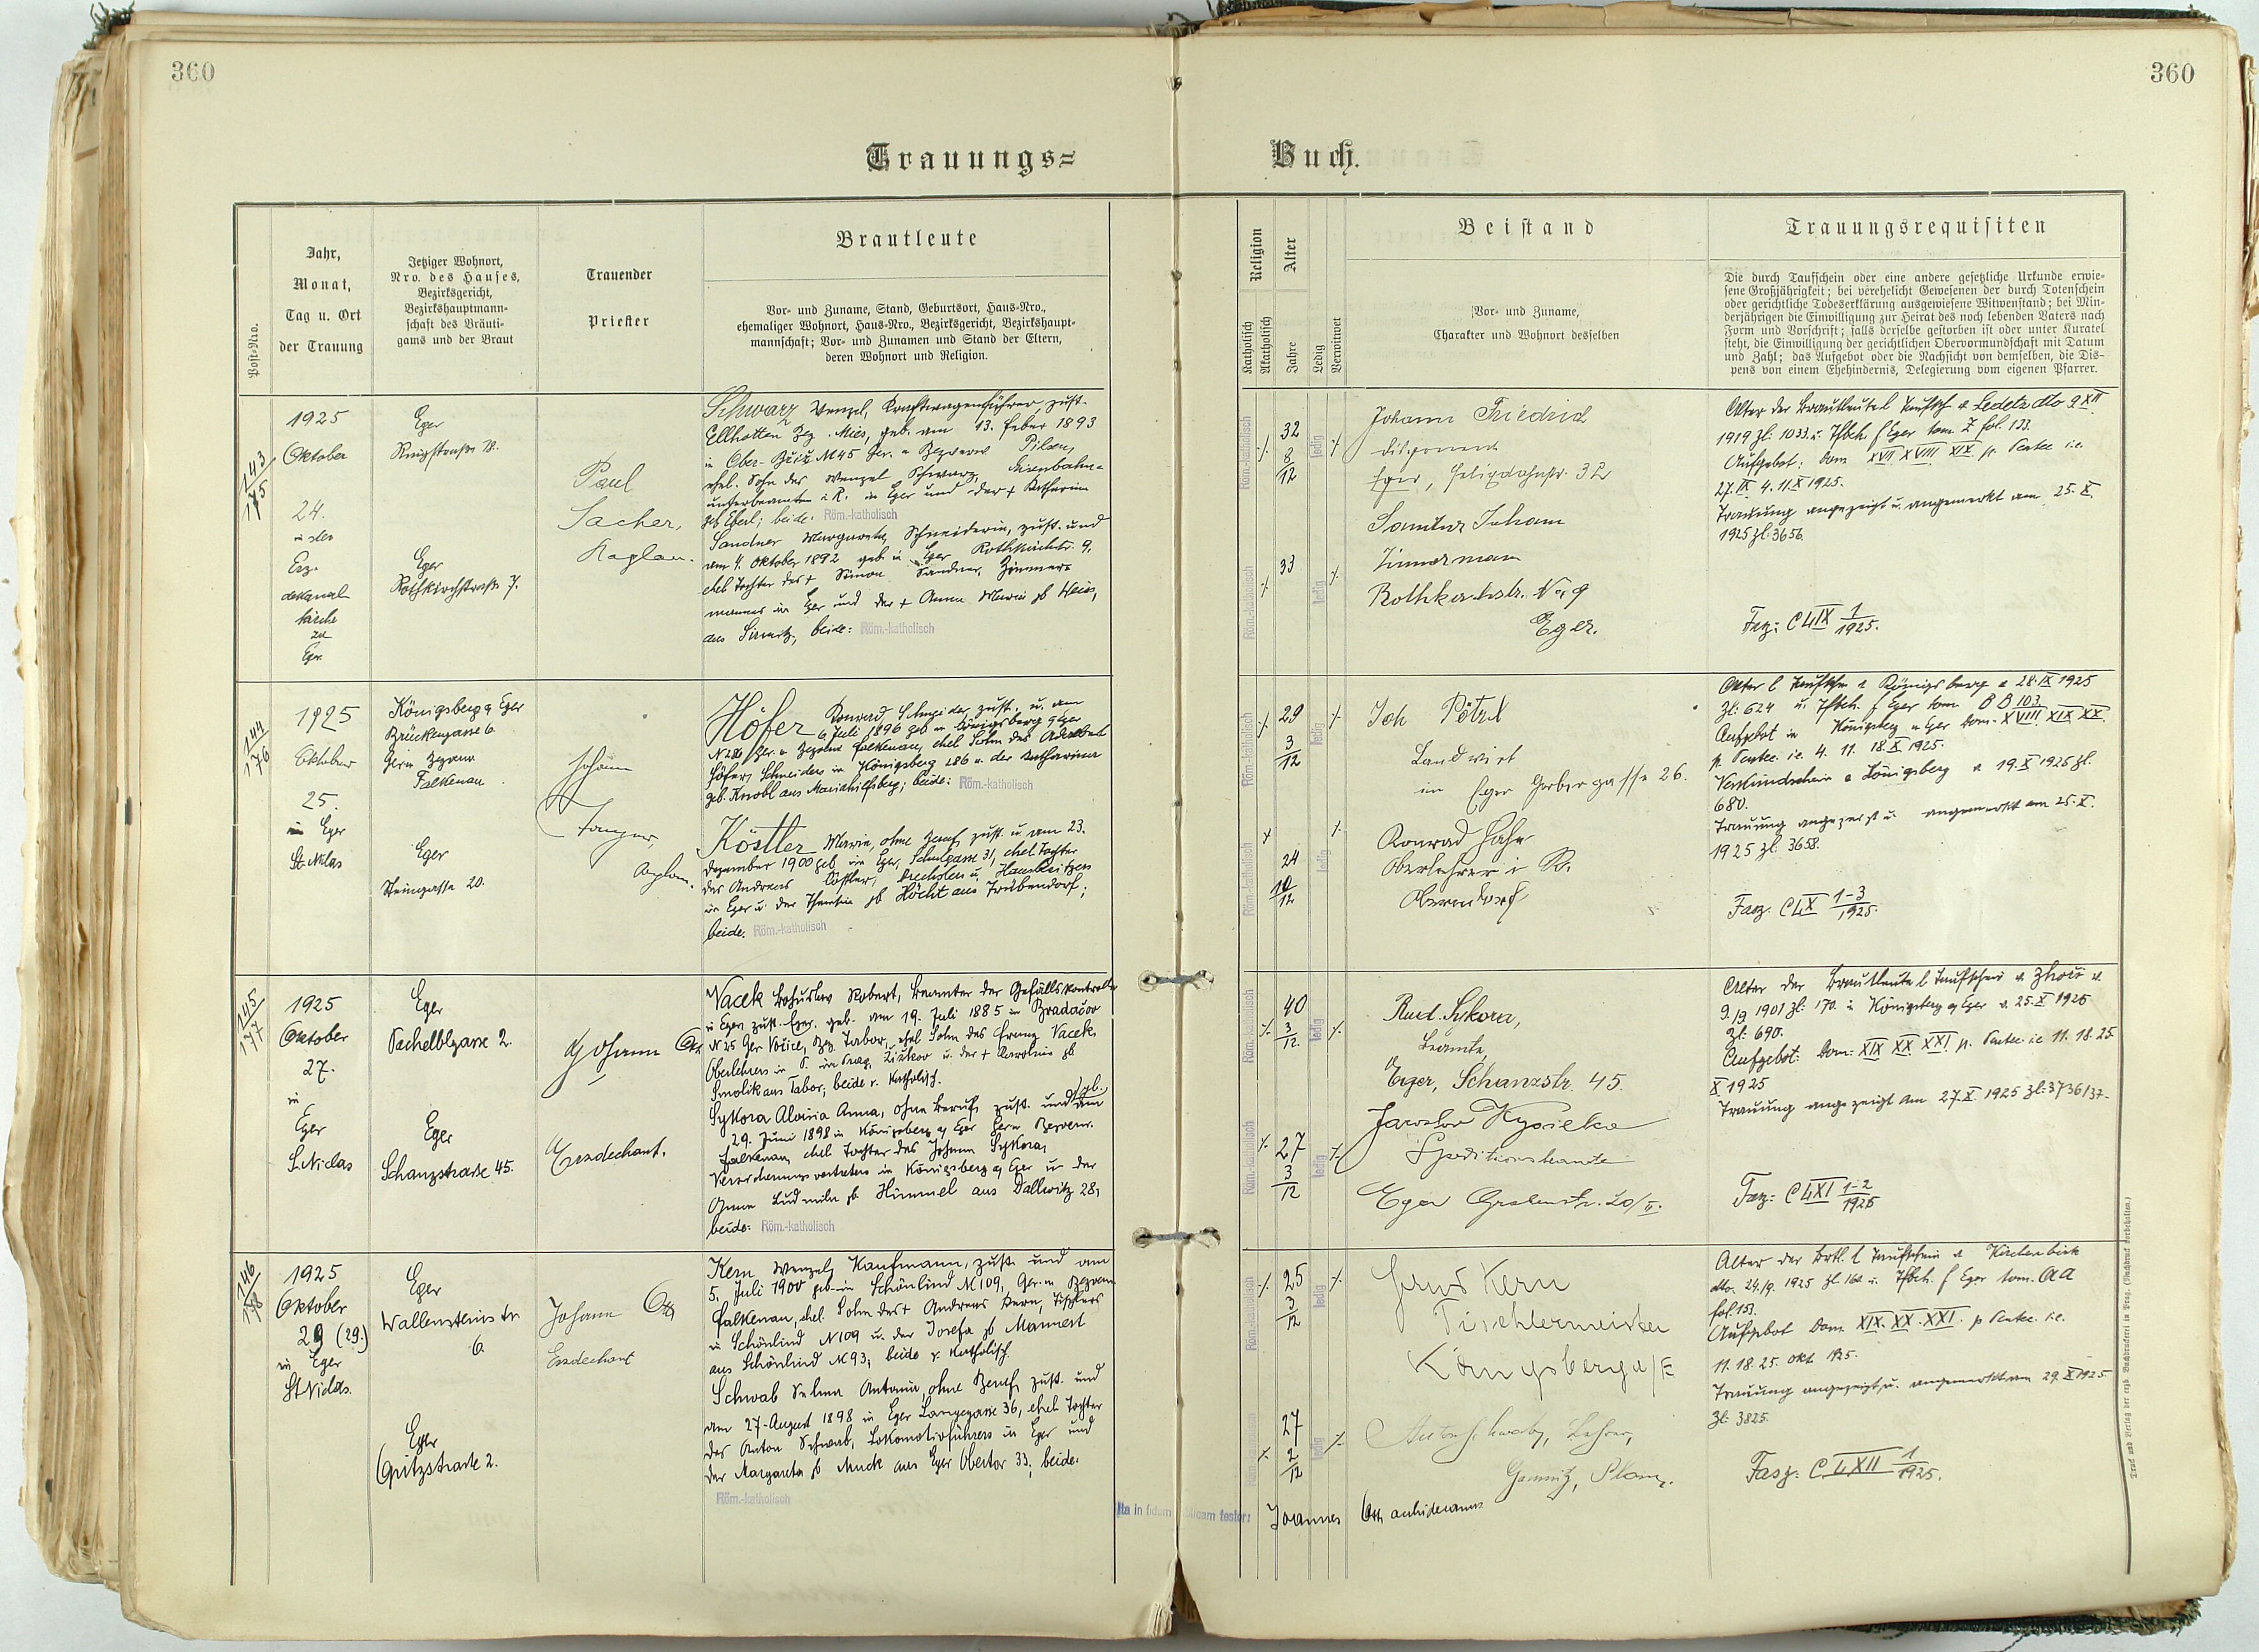 360
360
Trauungs=
Buch.
Post=Nro.
Jahr,
Monat,
Tag u. Ort
der Trauung
Jetziger Wohnort,
Nro. des Hauses,
Bezirksgericht,
Bezirkshauptmann=
schaft des Bräuti=
gams und der Braut
Trauender
Priester
Brautleute
Vor= und Zuname, Stand, Geburtsort, Haus=Nro.,
ehemaliger Wohnort, Haus=Nro., Bezirksgericht, Bezirkshaupt=
mannschaft; Vor= und Zunamen und Stand der Eltern,
deren Wohnort und Religion.
Religion
Katholisch
Akatholisch
Alter
Jahre
Ledig
Verwitwet
Beistand
Vor= und Zuname,
Charakter und Wohnort desselben
Trauungsrequisiten
Die durch Taufschein oder eine andere gesetzliche Urkunde erwie=
sene Großjährigkeit; bei verehelicht Gewesenen der durch Totenschein
oder gerichtliche Todeserklärung ausgewiesene Witwenstand; bei Min=
derjährigen die Einwilligung zur Heirat des noch lebenden Vaters nach
Form und Vorschrift; falls derselbe gestorben ist oder unter Kuratel
steht, die Einwilligung der gerichtlichen Obervormundschaft mit Datum
und Zahl; das Aufgebot oder die Nachsicht von demselben, die Dis=
pens von einem Ehehindernis, Delegierung vom eigenen Pfarrer.
143
175
1925
Oktober
24.
in der
Erz-
dekanal
kirche
zu
Eger
Eger
Eger
Rothkirchstraße 7.
Paul
Sacher,
Kaplan.
Schwarz Wenzel, Kraftwagenführer, zust.
Ellhotten Bez. Mies, geb. am 13. Feber 1893
in Ober- N 45 Ger. u. Pilsen,
ehel. Sohn des Wenzel Schwarz, Eisenbahn-
unterbeamten i. R. in Eger und der + Katharina
geb. Eberl; beide: Röm.-katholisch
Sandner Margareta, Schneiderin, zust. und
am 4. Oktober 1892 geb. in Eger Rothkirchstr. 9,
ehel. Tochter des + Simon Sandner, Zimmer-
mannes in Eger und der + Anna Maria gb Weis,
aus Sirmitz, beide: Röm.-katholisch
Röm.-katholisch
32
8/12
ledig
Röm.-katholisch
33
ledig
Johann Friedrich
Eger, 32
Sandner Johann
Zimmermann
Rothkirchstr. No 9
Eger.
Alter der Brautleute l. Taufsch v. Ledetz dto 9 XII
1919 Zl. 1033 u. Tfbch f Eger tom Z fol. 133.
Aufgebot: Dom XVII XVIII XIX p. Pentec i.e.
27. IX 4. 11. X 1925.
Trauung angezeigt u. angemerkt am 25. X.
1925 Zl. 3656.
Fasz: C LIX 1/1925.
144
176
1925
Oktober
25.
in Eger
St. Niklas
Königsberg a Eger
Brückengasse 6
Falkenau
Eger
Steingasse 20.
Johann
Kaplan.
Höfer Konrad Schneider, zust. u. am
6. Juli 1896 geb in Königsberg a Eger
N 286 Ger. u Falkenau, ehel Sohn des Adalbert
Höfer, Schneiders in Königsberg 286 u. der Katharina
geb. Knobl aus Mariahilfsberg; beide: Röm.-katholisch
Köstler Maria, ohne Beruf, zust. u. am 23.
Dezember 1900 geb in Eger, Schulgasse 31, ehel. Tochter
des Andreas Köstler, Drechslers u. Hausbesitzers
in Eger u. der Theresia gb Höcht aus Trübendorf;
beide. Röm.-katholisch
Röm.-katholisch
29
3/12
ledig
Röm.-katholisch
24
10/12
ledig
Joh Pötzl
Landwirt
in Eger Gerbergasse 26.
Konrad Hahn
Oberlehrer i R.
Alter l Taufschn v Königsberg v 28. IX 1925
Zl. 624 u. Tfbch. f Eger tom B B 103.
Aufgebot in Königsberg u Eger Dom. XVIII XIX XX.
p. Pentec. i.e. 4. 11. 18. X 1925.
Verkündschein v Königsberg v 19. X 1925 Zl.
680.
Trauung angezeigt u. angemerkt am 25. X.
1925 Zl. 3658.
Fasz. C LX 1-3/1925.
145
177
1925
Oktober
27.
in
Eger
S. Niclas
Eger
Pachelblgasse 2.
Eger
Schanzstrasse 45.
Johann Oth
Erzdechant.
Vacek Bohuslav Robert, Beamter der Gefällskontrolle
in Eger, zust. Eger, geb. am 19. Juli 1885 in Bradačov
N 25 Ger Vožice, Bez Tabor, ehel Sohn des Franz Vacek,
Oberlehrers in P. in Prag Žižkov u. der + Karoline gb
Smolik aus Tabor, beide r. katholisch.
Sykora Aloisia Anna, ohne Beruf, zust. und am
29. Juni 1898 in Königsberg a Eger
Falkenau, ehel. Tochter des Johann Sykora,
Versicherungsvertreters in Königsberg a Eger u. der
Anna Ludmila gb Himmel aus Dallwitz 28,
beide: Röm.-katholisch
Röm.-katholisch
40
3/12
ledig
Röm.-katholisch
27
3/12
ledig
Rud. Sykora,
Beamte,
Eger, Schanzstr. 45.
Jaroslav Kysielka
Speditionsbeamte
Eger Grabenstr.
Alter der Brautleute l Taufschein v Zhoř v
9./9 1901 Zl. 170. u Königsberg a Eger v. 25. X 1925
Zl. 690.
Aufgebot: Dom. XIX XX XXI p. Pentec i.e 11. 18. 25.
X 1925
Trauung angezeigt am 27. X. 1925 Zl. 3736/37.
Fasz: C LXI 1-2/1925
146
178
1925
Oktober
29 (29.)
in Eger
St Niclas.
Eger
Wallensteinstr
6.
Eger
Opitzstrasse 2.
Johann Oth
Erzdechant
Kern Wenzel, Kaufmann, zust. und am
5. Juli 1900 geb in Schönlind N 109, Ger. u.
Falkenau, ehel. Sohn des + Andreas Kern, Tischlers
in Schönlind N 109 u. der Josefa gb Mannert
aus Schönlind N 93, beide r. katholisch
Schwab Selma Antonia, ohne Beruf, zust. und
am 27. August 1898 in Eger Langegasse 36, ehel. Tochter
des Anton Schwab, Lokomotivführers in Eger und
der Margareta gb Muck aus Eger Obertor 33; beide:
Röm.-katholisch
Röm.-katholisch
25
3/12
ledig
Röm.-katholisch
27
2/12
ledig
Kern
Tischlermeister
Königsberg a/E
Anton Schwab, Lehrer,
Plan.
Alter der Brtl. l Taufschein v Kirchenbirk
dto. 24./9. 1925 Zl. u. Tfbch. f Eger tom. AA
fol. 153.
Aufgebot Dom. XIX. XX. XXI. p Pentec. i.e.
11. 18. 25. Okt 1925.
Trauung angezeigt u. angemerkt am 29. X 1925
Zl. 3825.
Fasz: C LXII 1/1925.
Ita in fidem publicam testor:
Joannes Oth archidecanus
Druck und Verlag der erzb. Buchdruckerei in Prag. (Nachdruck verboten.)